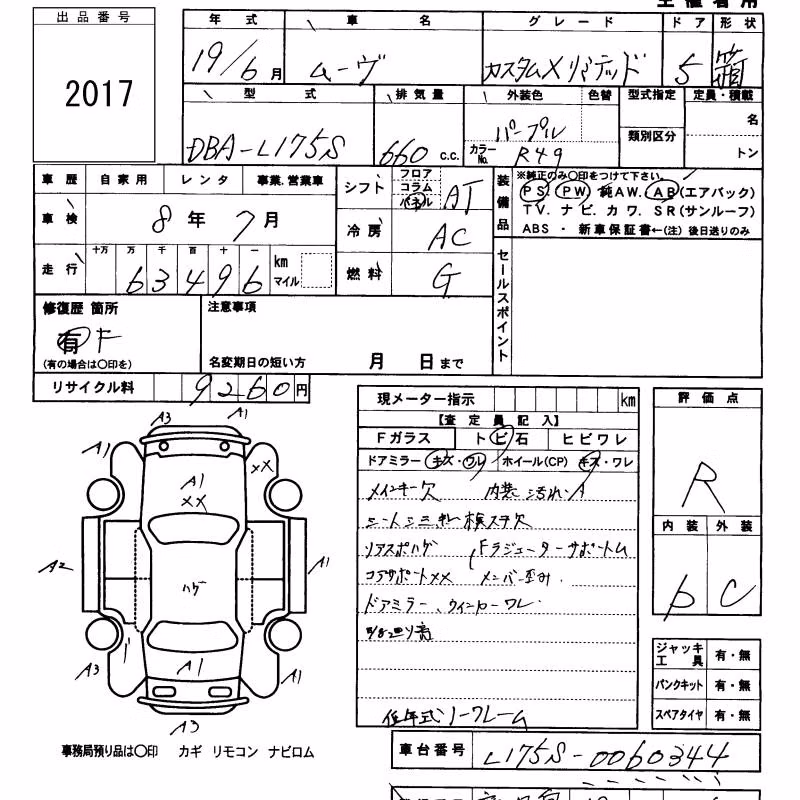 出品番号
2017
年式 車名 グレード ドア 形状
19/6月 ムーヴ カスタムXリミテッド 5 箱
型式 排気量 外装色 色替 型式指定 定員・積載
DBA-L175S 660 c.c. パープル 名
カラーNo. R49 類別区分 トン
車歴 自家用 レンタ 事業.営業車
車検 8年 7月
走行 十万 万 千 百 十 一
63496 km マイル
シフト フロア コラム パネル AT
冷房 AC
燃料 G
装備品 ※純正のみ○印をつけて下さい。
PS. PW. 純AW. AB(エアバック)
TV. ナビ. カワ. SR(サンルーフ)
ABS ・ 新車保証書←(注) 後日送りのみ
セールスポイント
修復歴 箇所
有 F
(有の場合は○印を)
注意事項
名変期日の短い方 月 日まで
リサイクル料 9260円
A3 A1
A1 A1 XX
XX
A2 ハゲ A1
A3 A1 A1
A3
事務局預り品は○印 カギ リモコン ナビロム
現メーター指示 km
【査定員記入】
Fガラス トビ石 ヒビワレ
ドアミラー キズ・ワレ ホイール(CP) キズ・ワレ
メインキー欠 内装汚れ
シート 検ステ欠
リアスポハゲ Fラジエーターサポートム
コアサポートXX メンバー歪み.
ドアミラー、ウィンカーワレ
低年式ノークレーム
評価点
R
内装 外装
D C
ジャッキ 工具 有・無
パンクキット 有・無
スペアタイヤ 有・無
車台番号 L175S-0060344